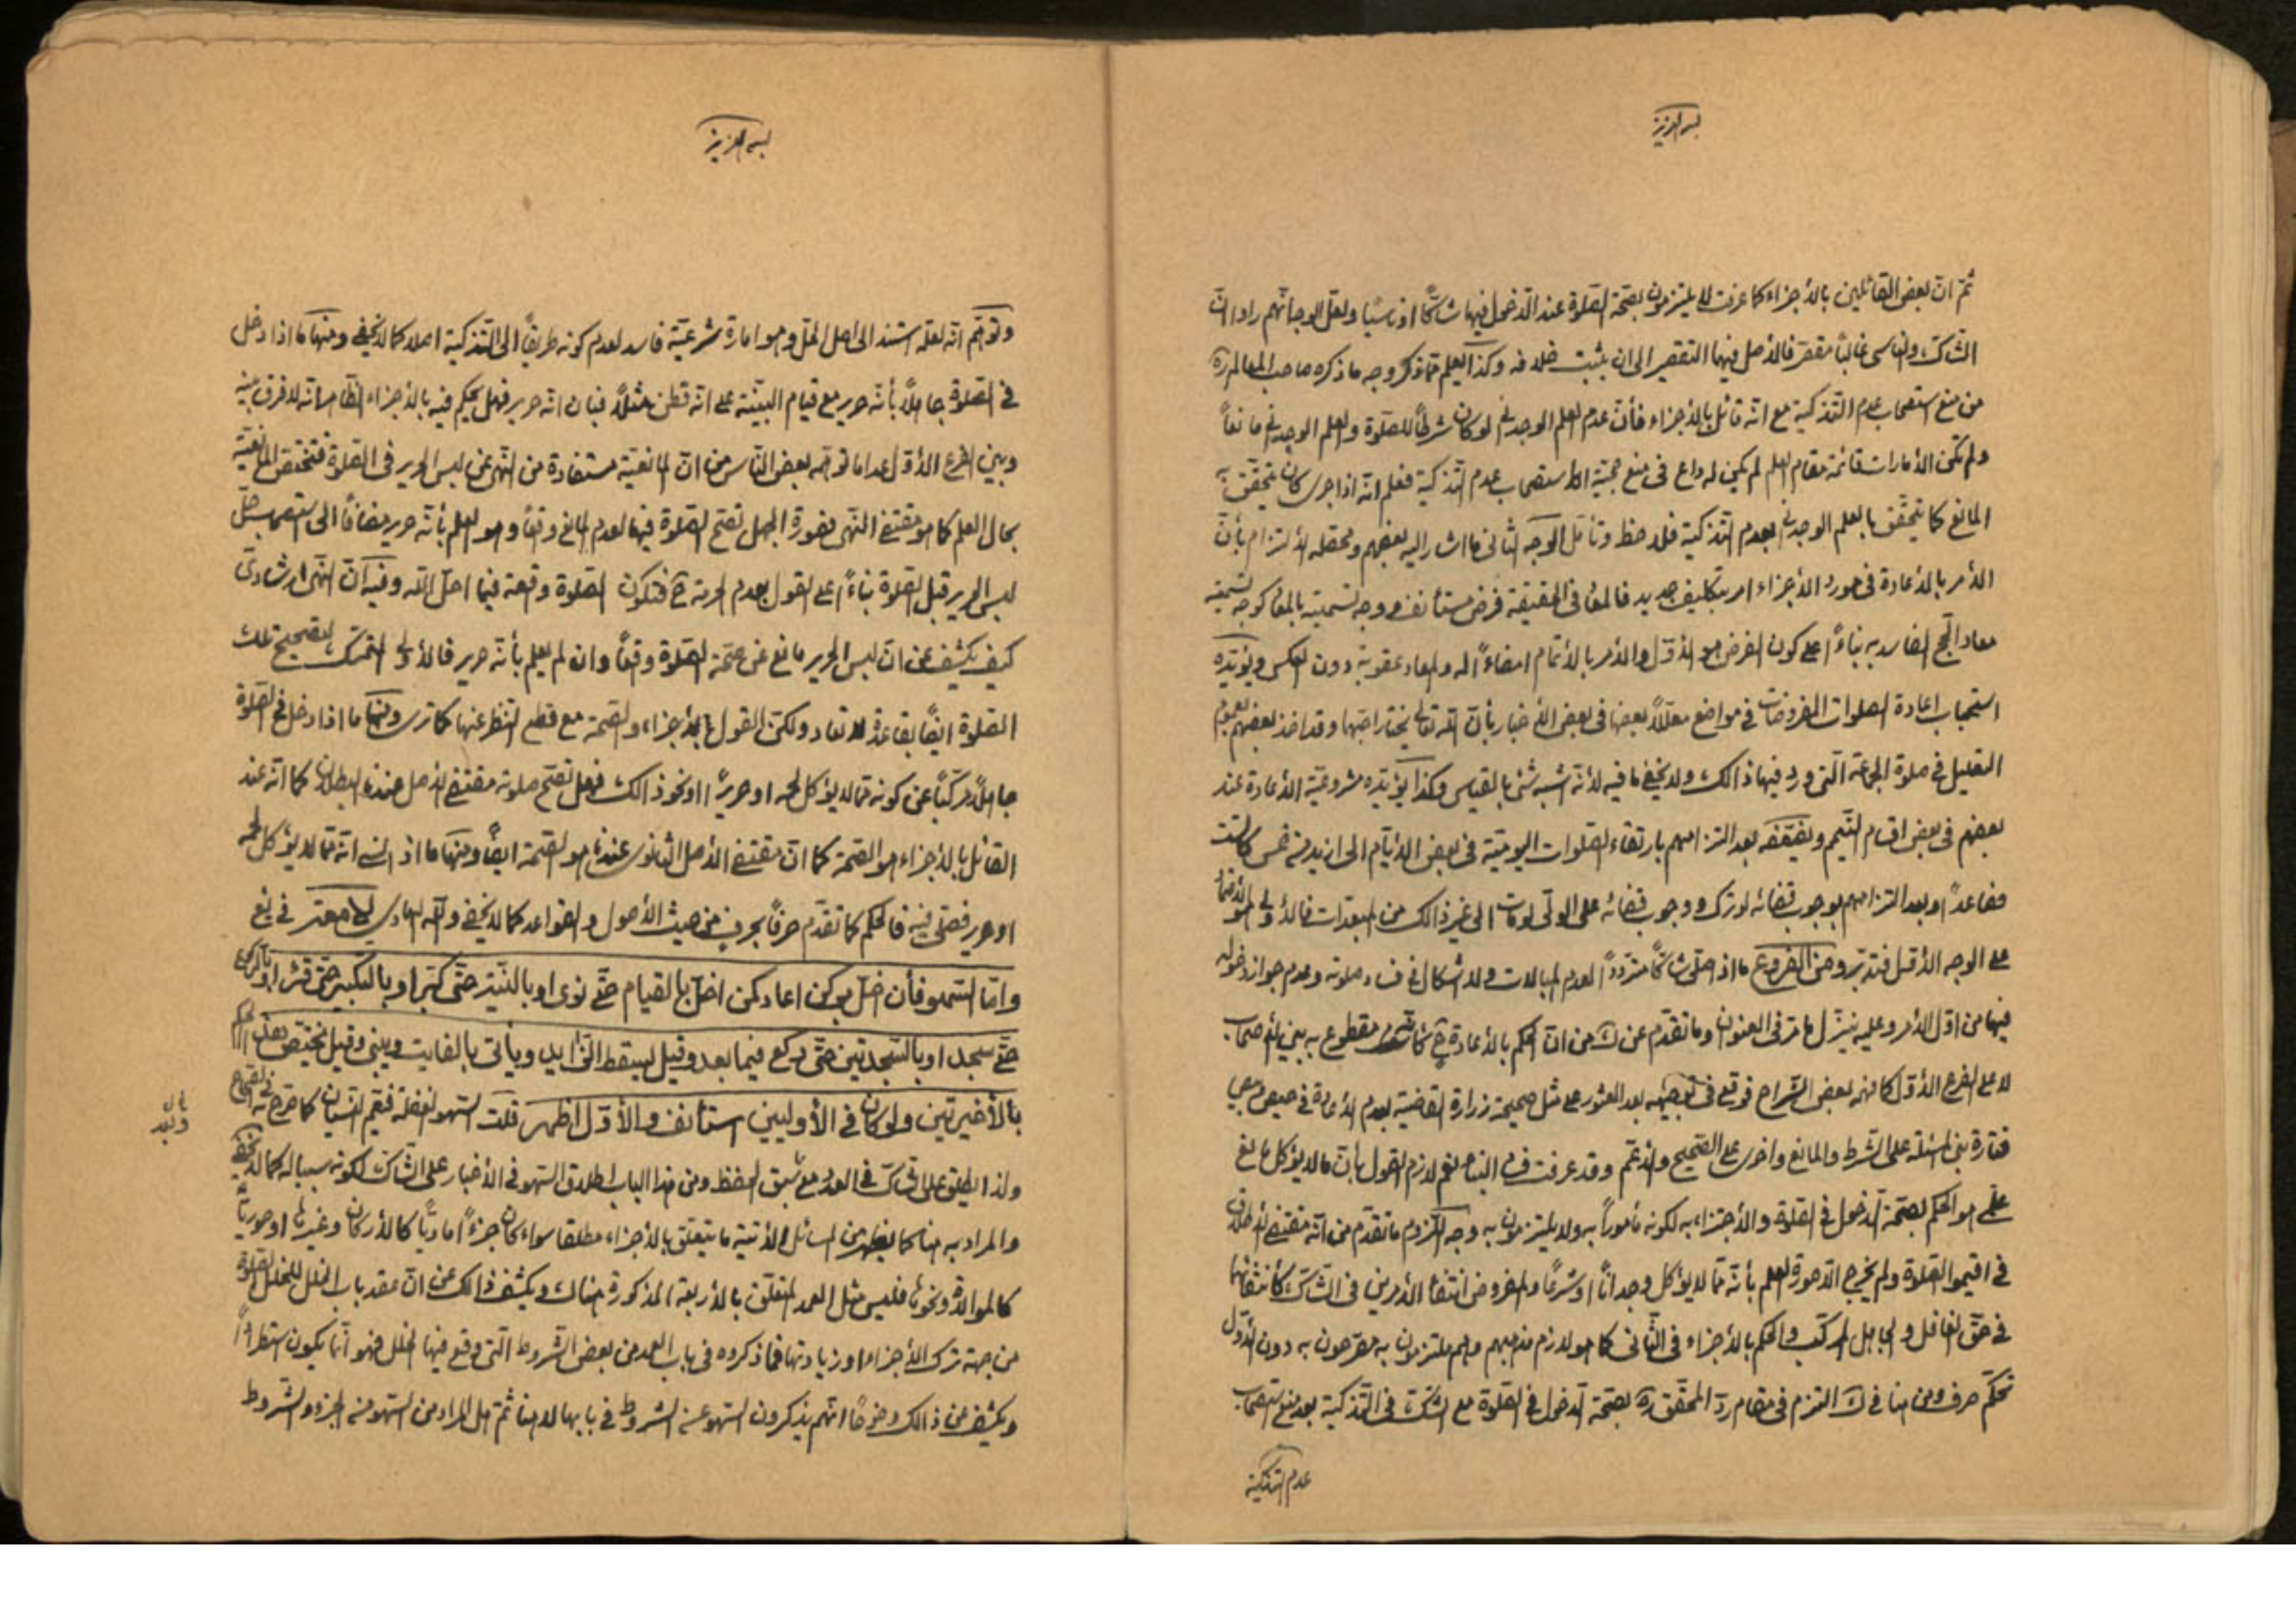 بسمه العزيز
ثمّ انّ بعض القائلين بالأجزاء كما عرفت لا يلتزمون بصحّة الصّلوة عند الدّخول فيها شاكّاً او ناسيًا ولعلّ الوجه انّهم راوا انّ
الشاكّ والناسى غالباً مقصّر فالأصل فيهما التقصير الى ان يثبت خلافه وكذا يعلم ممّا ذكر وجه ما ذكره صاحب المعالم ره
من منع استصحاب عدم التّذكية مع انّه قائل بالأجزاء فأنّ عدم العلم الوجدانى لو كان شرطاً للصّلوة والعلم الوجدانى مانعاً
ولم تكن الأمارات قائمة مقام العلم لم يكن له داع فى منع حجيّة استصحاب عدم التّذكية فعلم انّه اذا جرى كان يتحقّق به
المانع كما يتحقّق بالعلم الوجدانى بعدم التّذكية فلاحظ وتأمّل الوجه الثّانى ما اشار اليه بعضهم ومحصّله الألتزام بأنّ
الأمر بالأعادة فى مورد الأجزاء امر بتكليف جديد فالمعاد فى الحقيقة فرض مستأنف ووجه تسميته بالمعاد كوجه تسميته
معاد الحجّ الفاسد به بناءً على كون الفرض هو الأوّل والأمر بالأتمام امضاءً له والمعاد عقوبة دون العكس ويؤيّده
استحباب اعادة الصلوات المفروضات فى مواضع معلّلاً بعضها فى بعض الأخبار بأنّ الله تعالى يختار احبّهما وقد اخذ بعضهم بعموم
التعليل فى صلوة الجماعة الّتى ورد فيها ذالك ولا يخفى ما فيه لأنّه اشبه شئ بالقياس وكذا يؤيّده مشروعيّة الأعادة عند
بعضهم فى بعض اقسام التيمم ويضعّفه بعد التزامهم بارتقاء الصلوات اليوميّة فى بعض الأيّام الى ازيد من خمس كالست
فصاعداً وبعد التزامهم بوجوب قضائه لو ترك ووجوب قضائه على الولىّ لو مات الى غير ذالك من المبعّدات فالأولى
على الوجه الأوّل فتدبّر ومن الفروع ما اذا صلّى شاكّاً متردّداً لعدم المبالات ولا اشكال فى فساد صلوته وعدم جواز دخوله
فيها من اوّل الأمر وعليه ينزّل ما مرّ فى العنوان وما تقدّم عن ك من انّ الحكم بالأعادة مقطوع به بين الأصحاب
لا على الفرع الأوّل كما فهمه بعض الشّراح فوقع فى بعد العثور على مثل صحيحة زرارة القاضية بعدم الأعادة
فتارة بنى المسئلة على الشّرط والمانع واخرى على الصّحيح والأعّم وقد عرفت فساد البناء نعم لازم القول بأنّ ما لا يؤكل مانع
علمى هو الحكم بصحّة الدّخول فى الصّلوة والأجتزاء به لكونه مأموراً به ولا يلتزمون به وجه اللّزوم ما تقدّم من انّه مقتضى الأطلاق
فى اقيموا الصّلوة ولم يخرج الّا صورة العلم بأنّه ممّا لا يؤكل وجداناً او شرعًا والمفروض انتفاء الأمرين فى الشّاكّ كأنتفائهما
فى حقّ الغافل والجاهل المركّب والحكم بالأجزاء فى الثّانى كما هو لازم مذهبهم وهم ملتزمون به مصرّحون به دون الأوّل
تحكّم صرف ومن هنا فى ك التزم فى مقام ردّ المحقّق ره بصحّة الدّخول فى الصّلوة مع الشّك فى التّذكية بعد منع استصحاب
عدم التذكية
بسمه العزيز
وتوهّم انّه لعلّه استند الى اصل الحلّ وهو امارة شرعيّة فاسد لعدم كونه طريقاً الى التّذكية اصلا كما لا يخفى ومنها ما اذا دخل
فى الصّلوة جاهلاً بأنّه حرير مع قيام البيّنة على انّه قطن مثلاً فبان انّه حرير فهل يحكم فيه بالأجزاء الظّاهر انّه لا فرق بينه
وبين الفرع الأوّل عدا ما توهّمه بعض النّاس من انّ المانعيّة مستفادة من النّهى عن لبس الحرير فى الصّلوة فتختص المانعيّة
بحال العلم كما هو مقتضى النّهى فصورة الجهل تصحّ الصّلوة فيها لعدم المانع واقعًا وهو العلم بأنّه حرير مضافًا الى استصحاب حلّ
لبس الحرير قبل الصّلوة بناءً على القول بعدم الحرمة ح فتكون الصّلوة واقعة فيما احلّ الله وفيه انّ النّهى ارشادىّ
كيف يكشف عن انّ لبس الحرير مانع عن صحّة الصّلوة واقعًا وان لم يعلم بأنّه حرير فالأولى التمسّك لتصحيح تلك
الصّلوة ايضًا بقاعدة لا تعاد ولكنّ القول بالأجزاء والصّحة مع قطع النّظر عنها كما ترى ومنها ما اذا دخل فى الصّلوة
جاهلاً مركّباً عن كونه ممّا لا يؤكل لحمه او حريرًا او نحو ذالك فهل تصحّ صلوته مقتضى الأصل عندنا البطلان كما انّه عند
القائل بالأجزاء هو الصّحة كما انّ مقتضى الأصل الثّانوى عندنا هو الصّحة ايضًا ومنها ما اذا نسى انّه ممّا لا يؤكل لحمه
او حرير فصلّى فيه فالحكم كما تقدّم حرفاً بحرف من حيث الأصول والقواعد كما لا يخفى والله الهادى
وامّا السّهو فأن اخلّ بركن اعاد كمن اخلّ بالقيام حتّى نوى او بالنّيّة حتّى كبّر او بالتكبير حتّى قرء او بالركوع
حتّى سجد او بالسّجدتين حتّى ركع فيما بعد وقيل يسقط الزّايد ويأتى بالفايت ويبنى وقيل يختصّ هذا الحكم
بالأخيرتين ولو كان فى الأوليين استأنف والأوّل اظهر قلت السّهو الغفلة فيعّم النسيان كما صرّح به فى الصّحاح
ولذا يطلق على الشّاكّ فى العدد مع سبق الحفظ ومن هذا الباب اطلاق السّهو فى الأخبار على الشّاكّ لكونه سببا له كما لا يخفى
والمراد به هنا كما يظهر من المسائل الأتية ما يتعلّق بالأجزاء مطلقا سواء كان جزءً ماديّا كالأركان وغيرها او صوريّا
كالموالاة ونحوها فليس مثل العمد المتعلّق بالأربعة المذكورة هناك ويكشف ذالك عن انّ عقد باب الخلل للخلل الصلوة
من جهة ترك الأجزاء او زيادتها فما ذكروه فى باب العمد من بعض الشّروط الّتى وقع فيها الخلل فهو انّما يكون استطراداً
ويكشف عن ذالك وضوحًا انّهم يذكرون السّهو عن الشروط فى بابها لا هنا ثمّ هل المراد من السّهو منه الجزء والشّروط